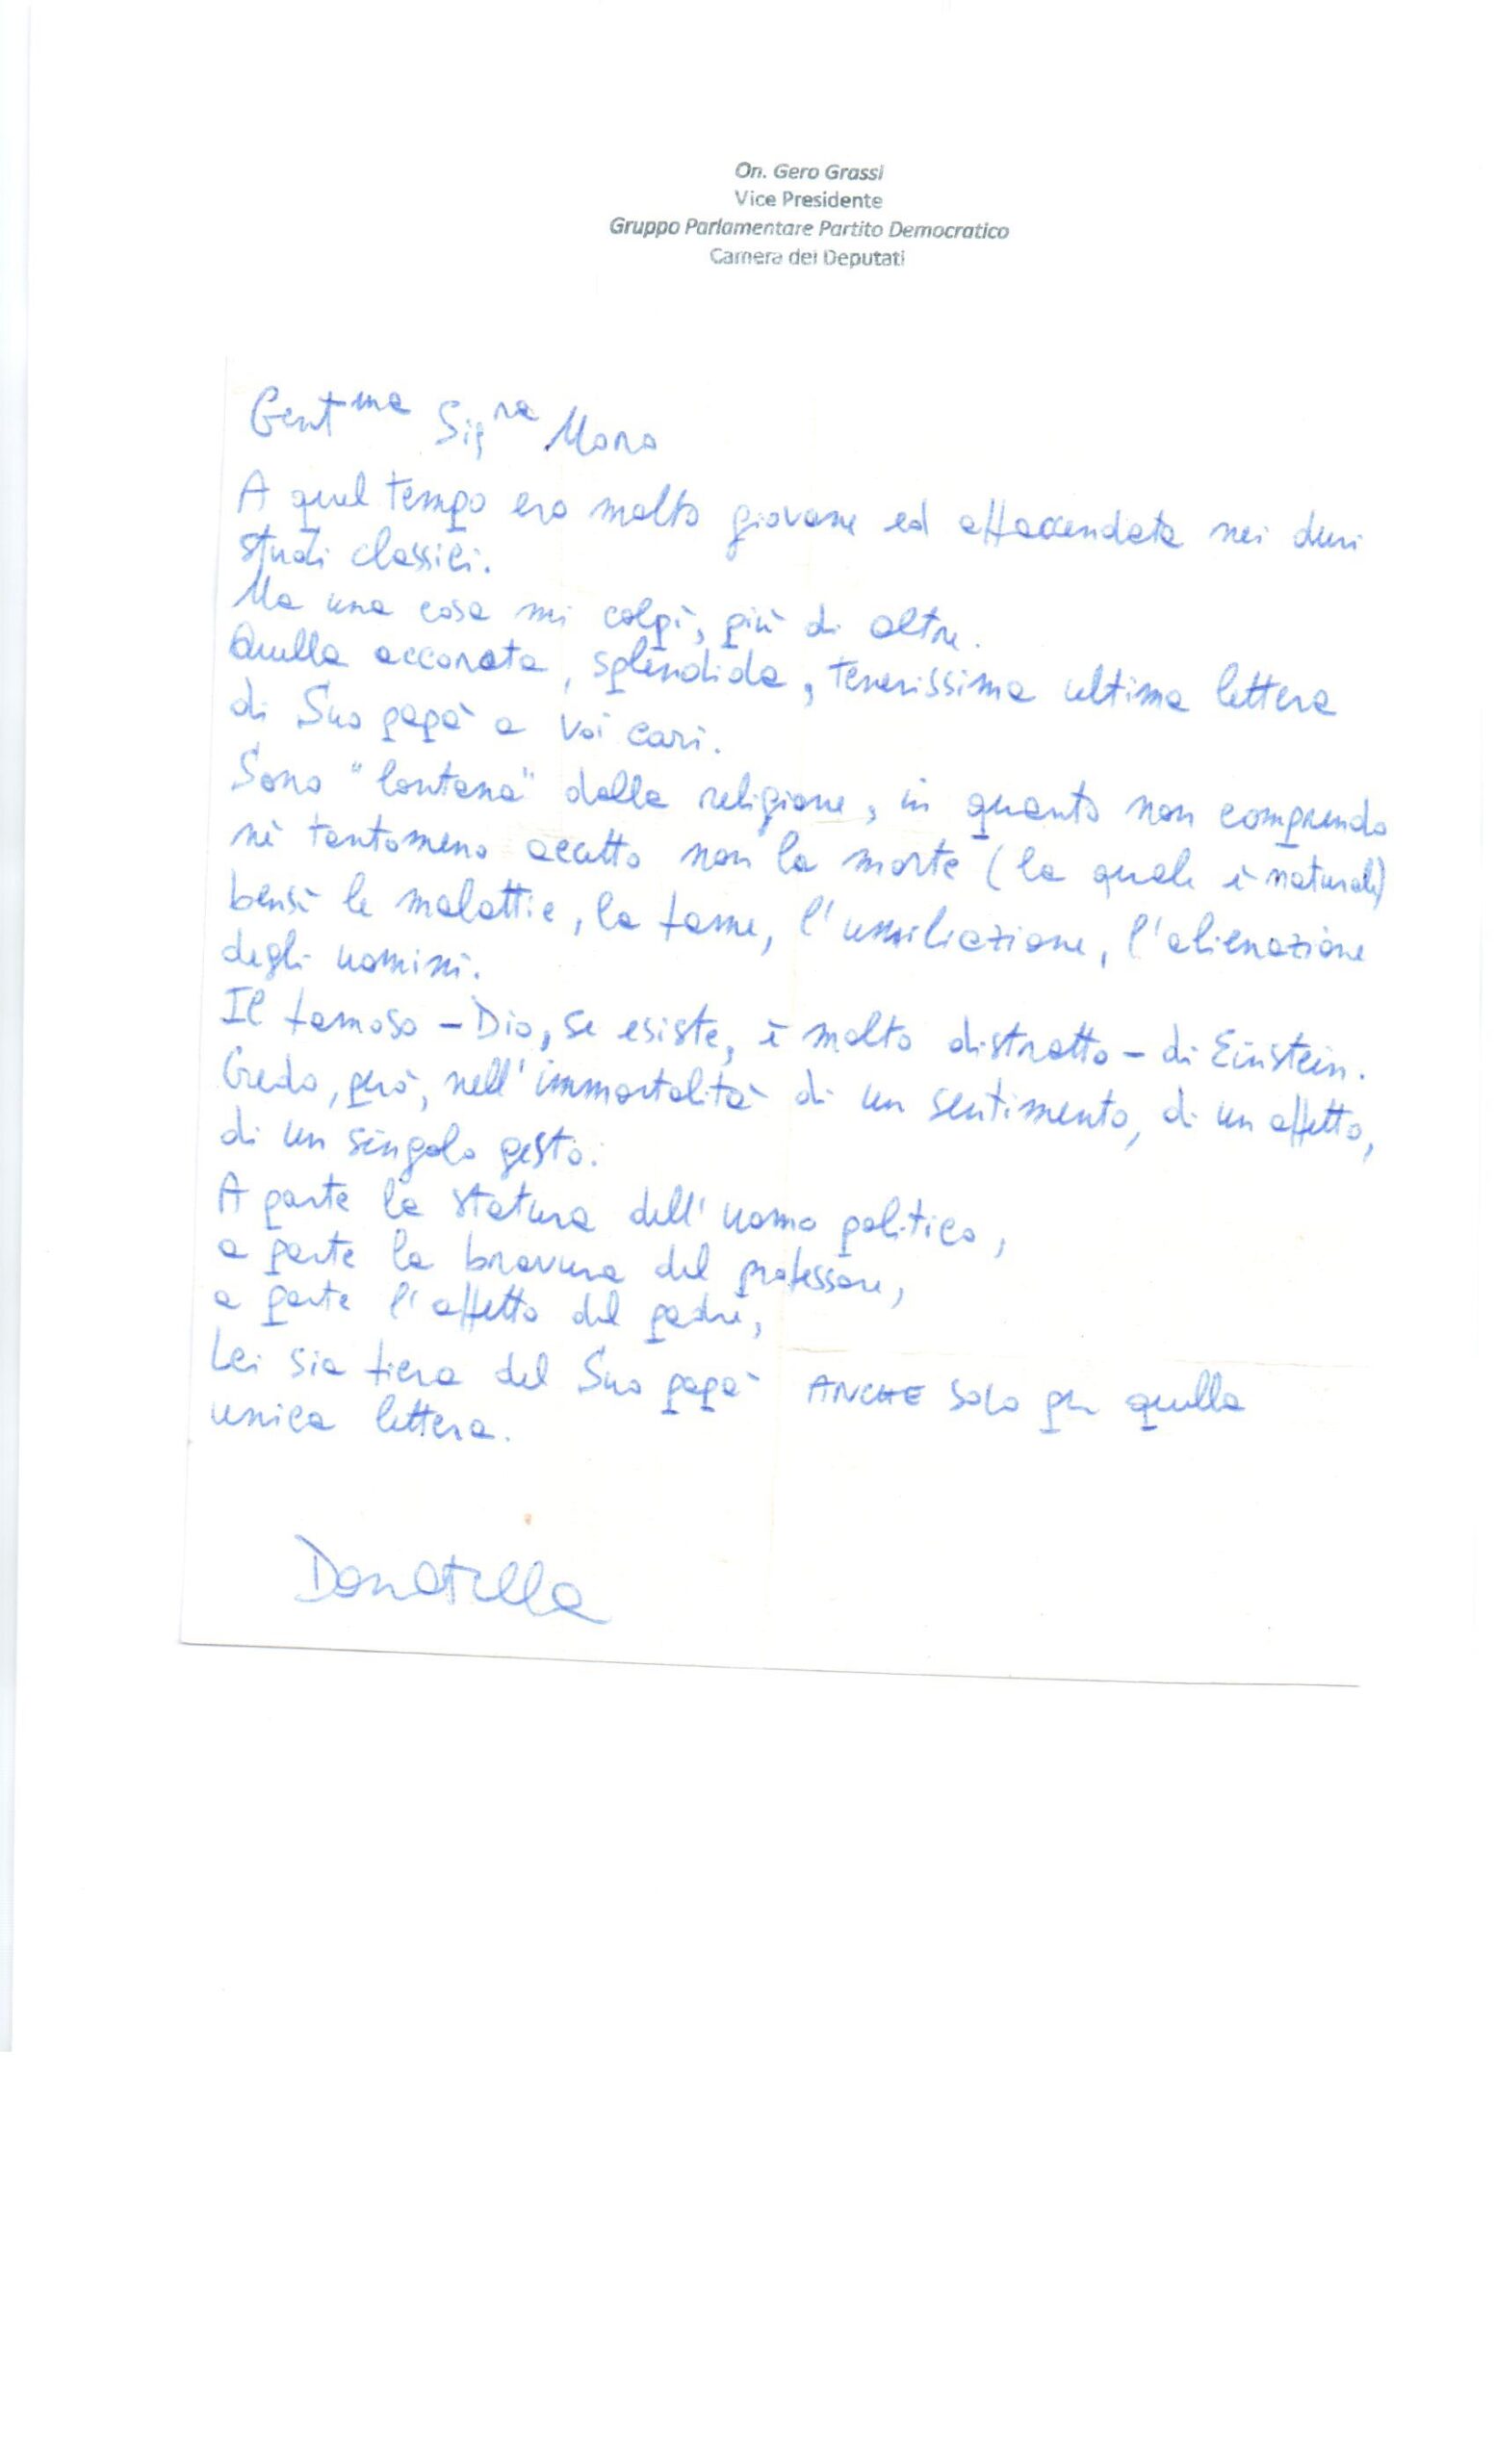 On. Gero Grassi
Vice Presidente
Gruppo Parlamentare Partito Democratico
Camera dei Deputati
Gent.ma Sig.ra Moro
A quel tempo ero molto giovane ed affaccendata nei duri
studi classici.
Ma una cosa mi colpì, più di altre.
Quella accorata, splendida, tenerissima ultima lettera
di Suo papà a Voi cari.
Sono "lontana" dalla religione, in quanto non comprendo
nè tantomeno accetto non la morte (la quale è naturale)
bensì le malattie, la fame, l'umiliazione, l'alienazione
degli uomini.
Il famoso - Dio, se esiste, è molto distratto - di Einstein.
Credo, però, nell'immortalità di un sentimento, di un affetto,
di un singolo gesto.
A parte la statura dell'uomo politico,
a parte la bravura del professore,
a parte l'affetto del padre,
Lei sia fiera del Suo papà ANCHE solo per quella
unica lettera.
Donatella